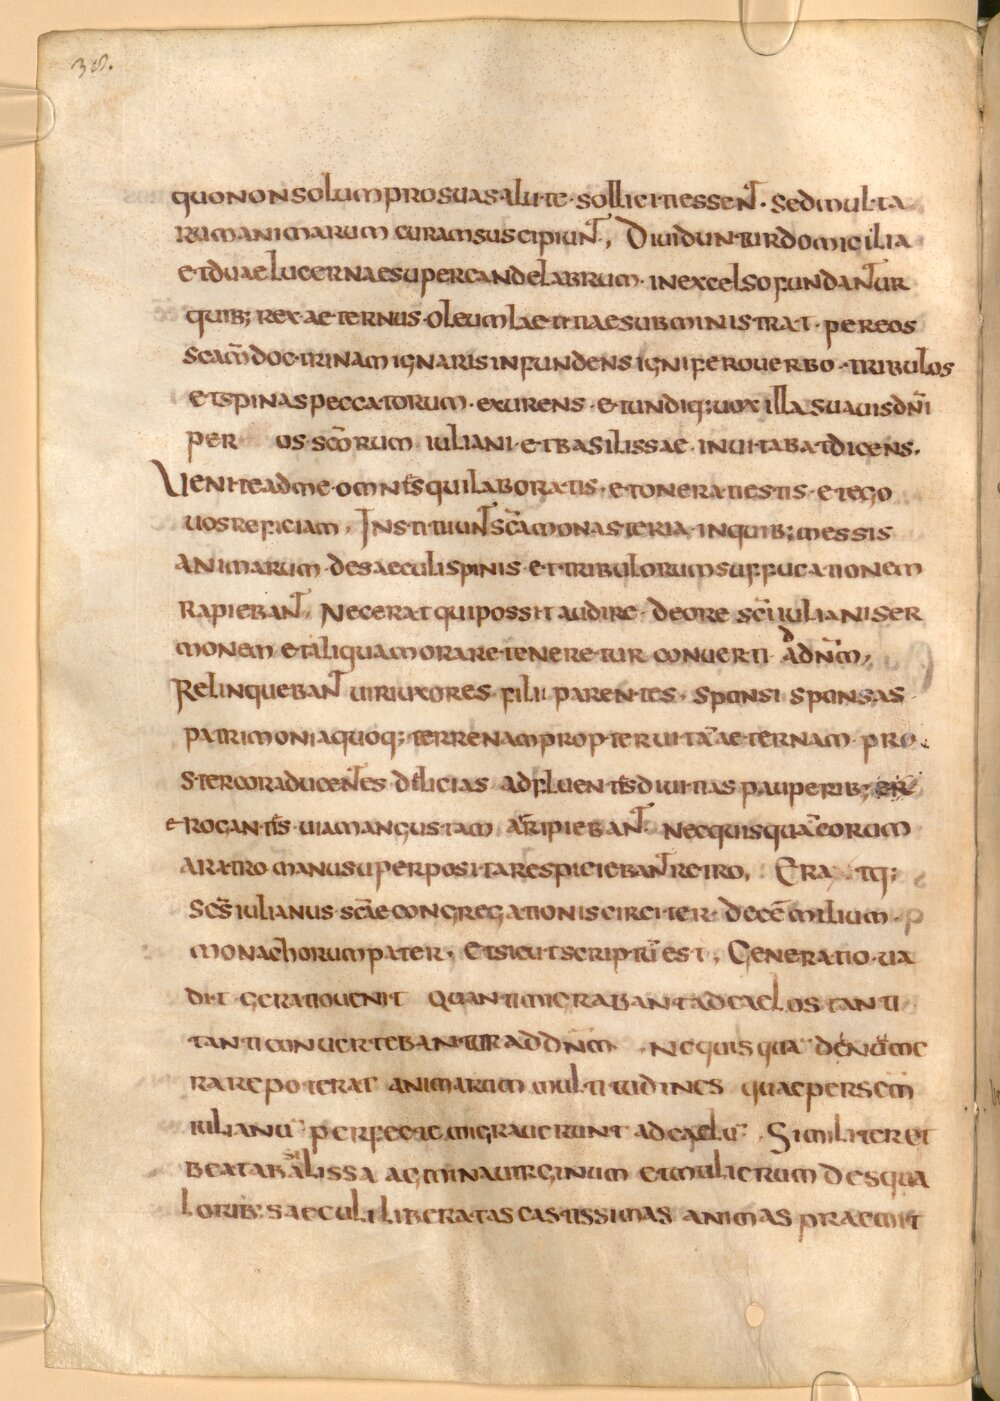 38.
quo non solum pro sua salute solliciti essent. sed multa
rum animarum curam suscipiunt, Diuiduntur domicilia
et duae lucernae super candelabrum. in excelso fundantur
quib; rex aeternus oleum laetitiae subministrat. per eos
scam doctrinam ignaris infundens ignifero uerbo. tribulos
et spinas peccatorum. exurens. et undiq; uox illa suauis dñi
per os scōrum iuliani et basilissae inuitabat dicens.
Uenite ad me omnes qui laboratis. et onerati estis. et ego
uos reficiam, Instituunt scā monasteria in quib; messis
animarum de saeculi spinis et tribulorum suffucationem
rapiebant, Nec erat qui possit audire de ore scī iuliani ser
monem et aliqua morare teneretur conuerti ad dñm;
Relinquebant uiri uxores filii parentes. sponsi sponsas
patrimonia quoq; terrenam propter uitā aeternam pro
stercora ducentes dilicias adfluentes diuitias pauperib;
erogantes uiam angustam arripiebant. nec quisquā eorum
aratro manu superposita respiciebant retro, Era tq;
scs iulianus scae congregationis circiter decē milium
monachorum pater. Et sicut scriptū est, Generatio ua
dit geratio uenit quanti migrabant ad caelos tanti
tanti conuertebantur ad dñm. nequisquā denume
rare poterat animarum multitudines quae per scm
iulianū perfectae migrauerunt ad caelū. Similiter et
beata basilissa agmina uirginum et mulierum de squa
lorib; saeculi liberatas castissimas animas praemit